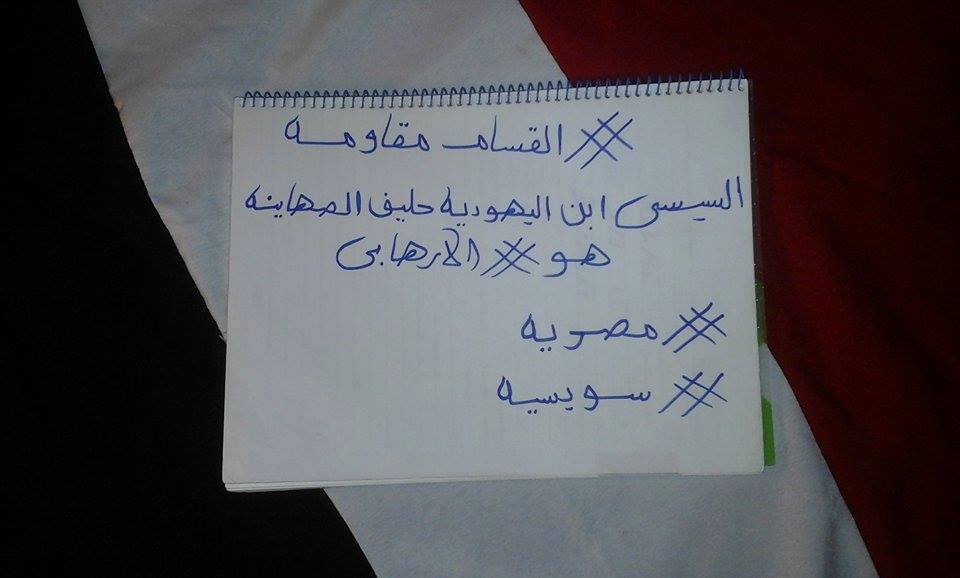 #القسام مقاومه
السيسى ابن اليهوديه حليف الصهاينه
هو #الارهابى
#مصريه
#سويسيه